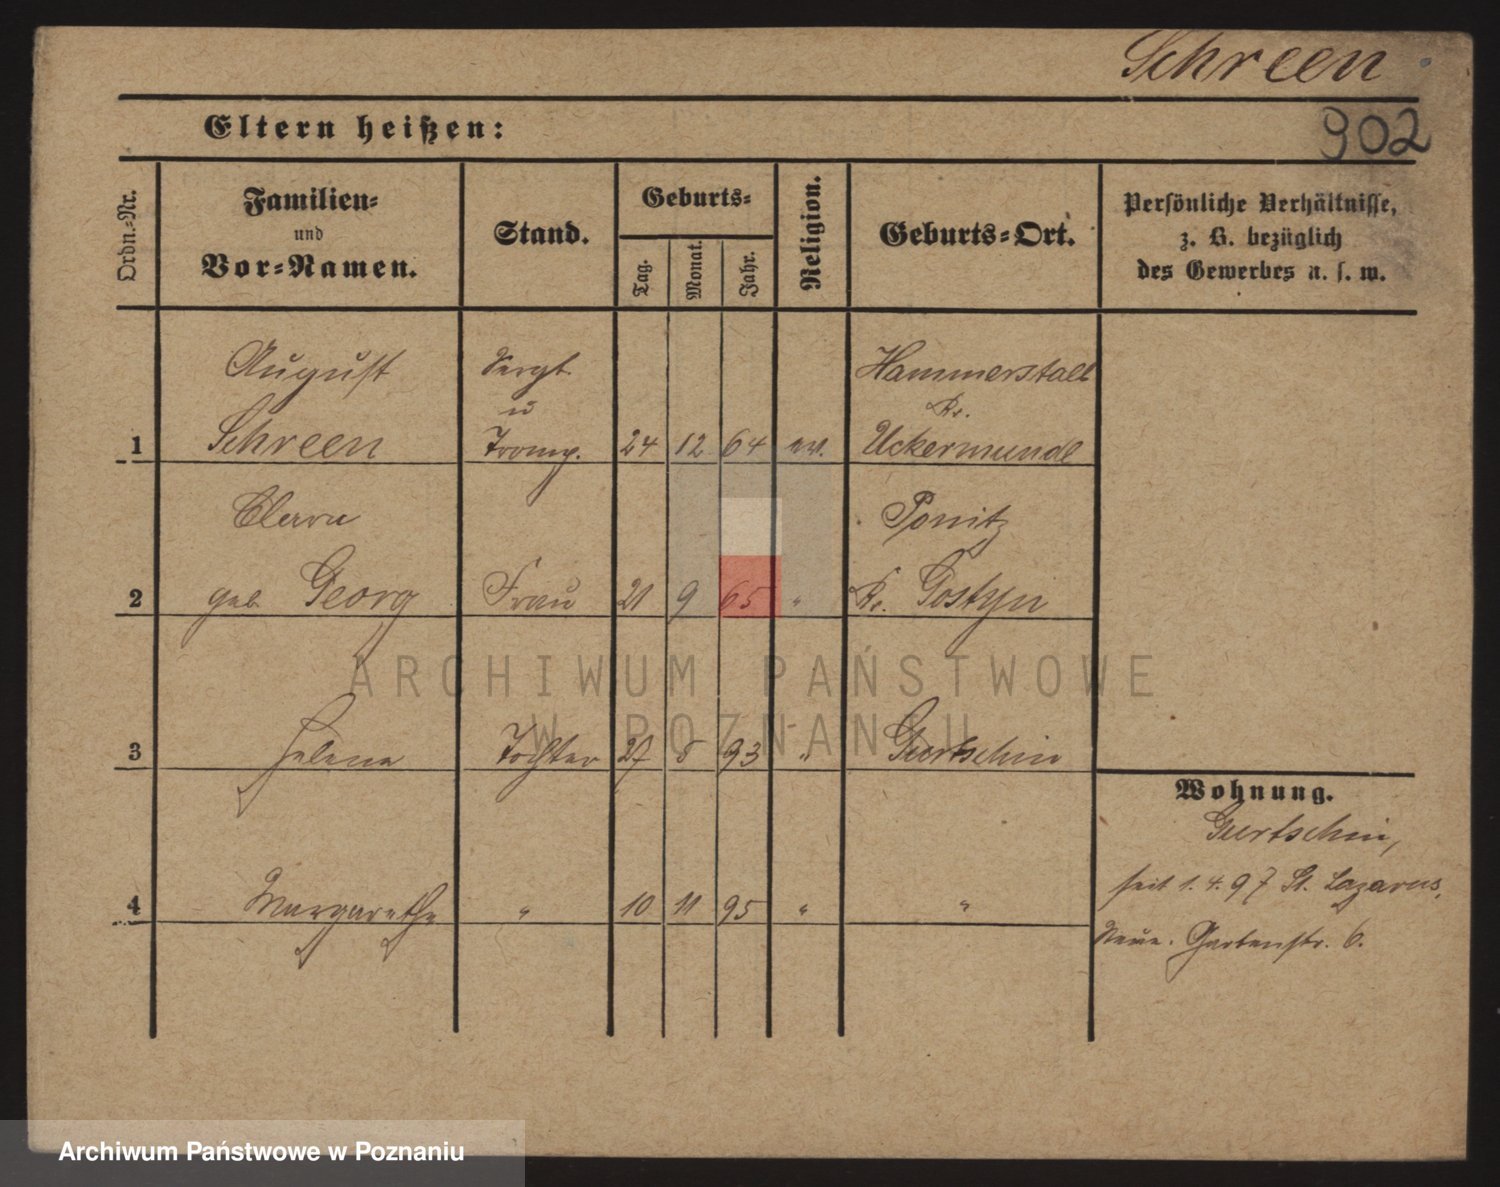 Schreen
902
Eltern heißen:
Ordn.-Nr.
Familien-
und
Vor-Namen.
Stand.
Geburts-
Tag.
Monat.
Jahr.
Religion.
Geburts-Ort.
Persönliche Verhältnisse,
z. B. bezüglich
des Gewerbes u. s. w.
August Sergt. Hammerstall
u Kr.
1 Schreen Tromp. 24 12 64 ev. Uckermünde
Clara Ponitz
2 geb. Georg Frau 21 9 65 " Kr. Gostyn
ARCHIWUM PAŃSTWOWE
W POZNANIU
3 Helene Tochter 27 5 93 " Gurtschin
Wohnung.
Gurtschin,
seit 1.4.97 St. Lazarus,
4 Margarethe " 10 11 95 " "
Neue. Gartenstr. 6.
Archiwum Państwowe w Poznaniu